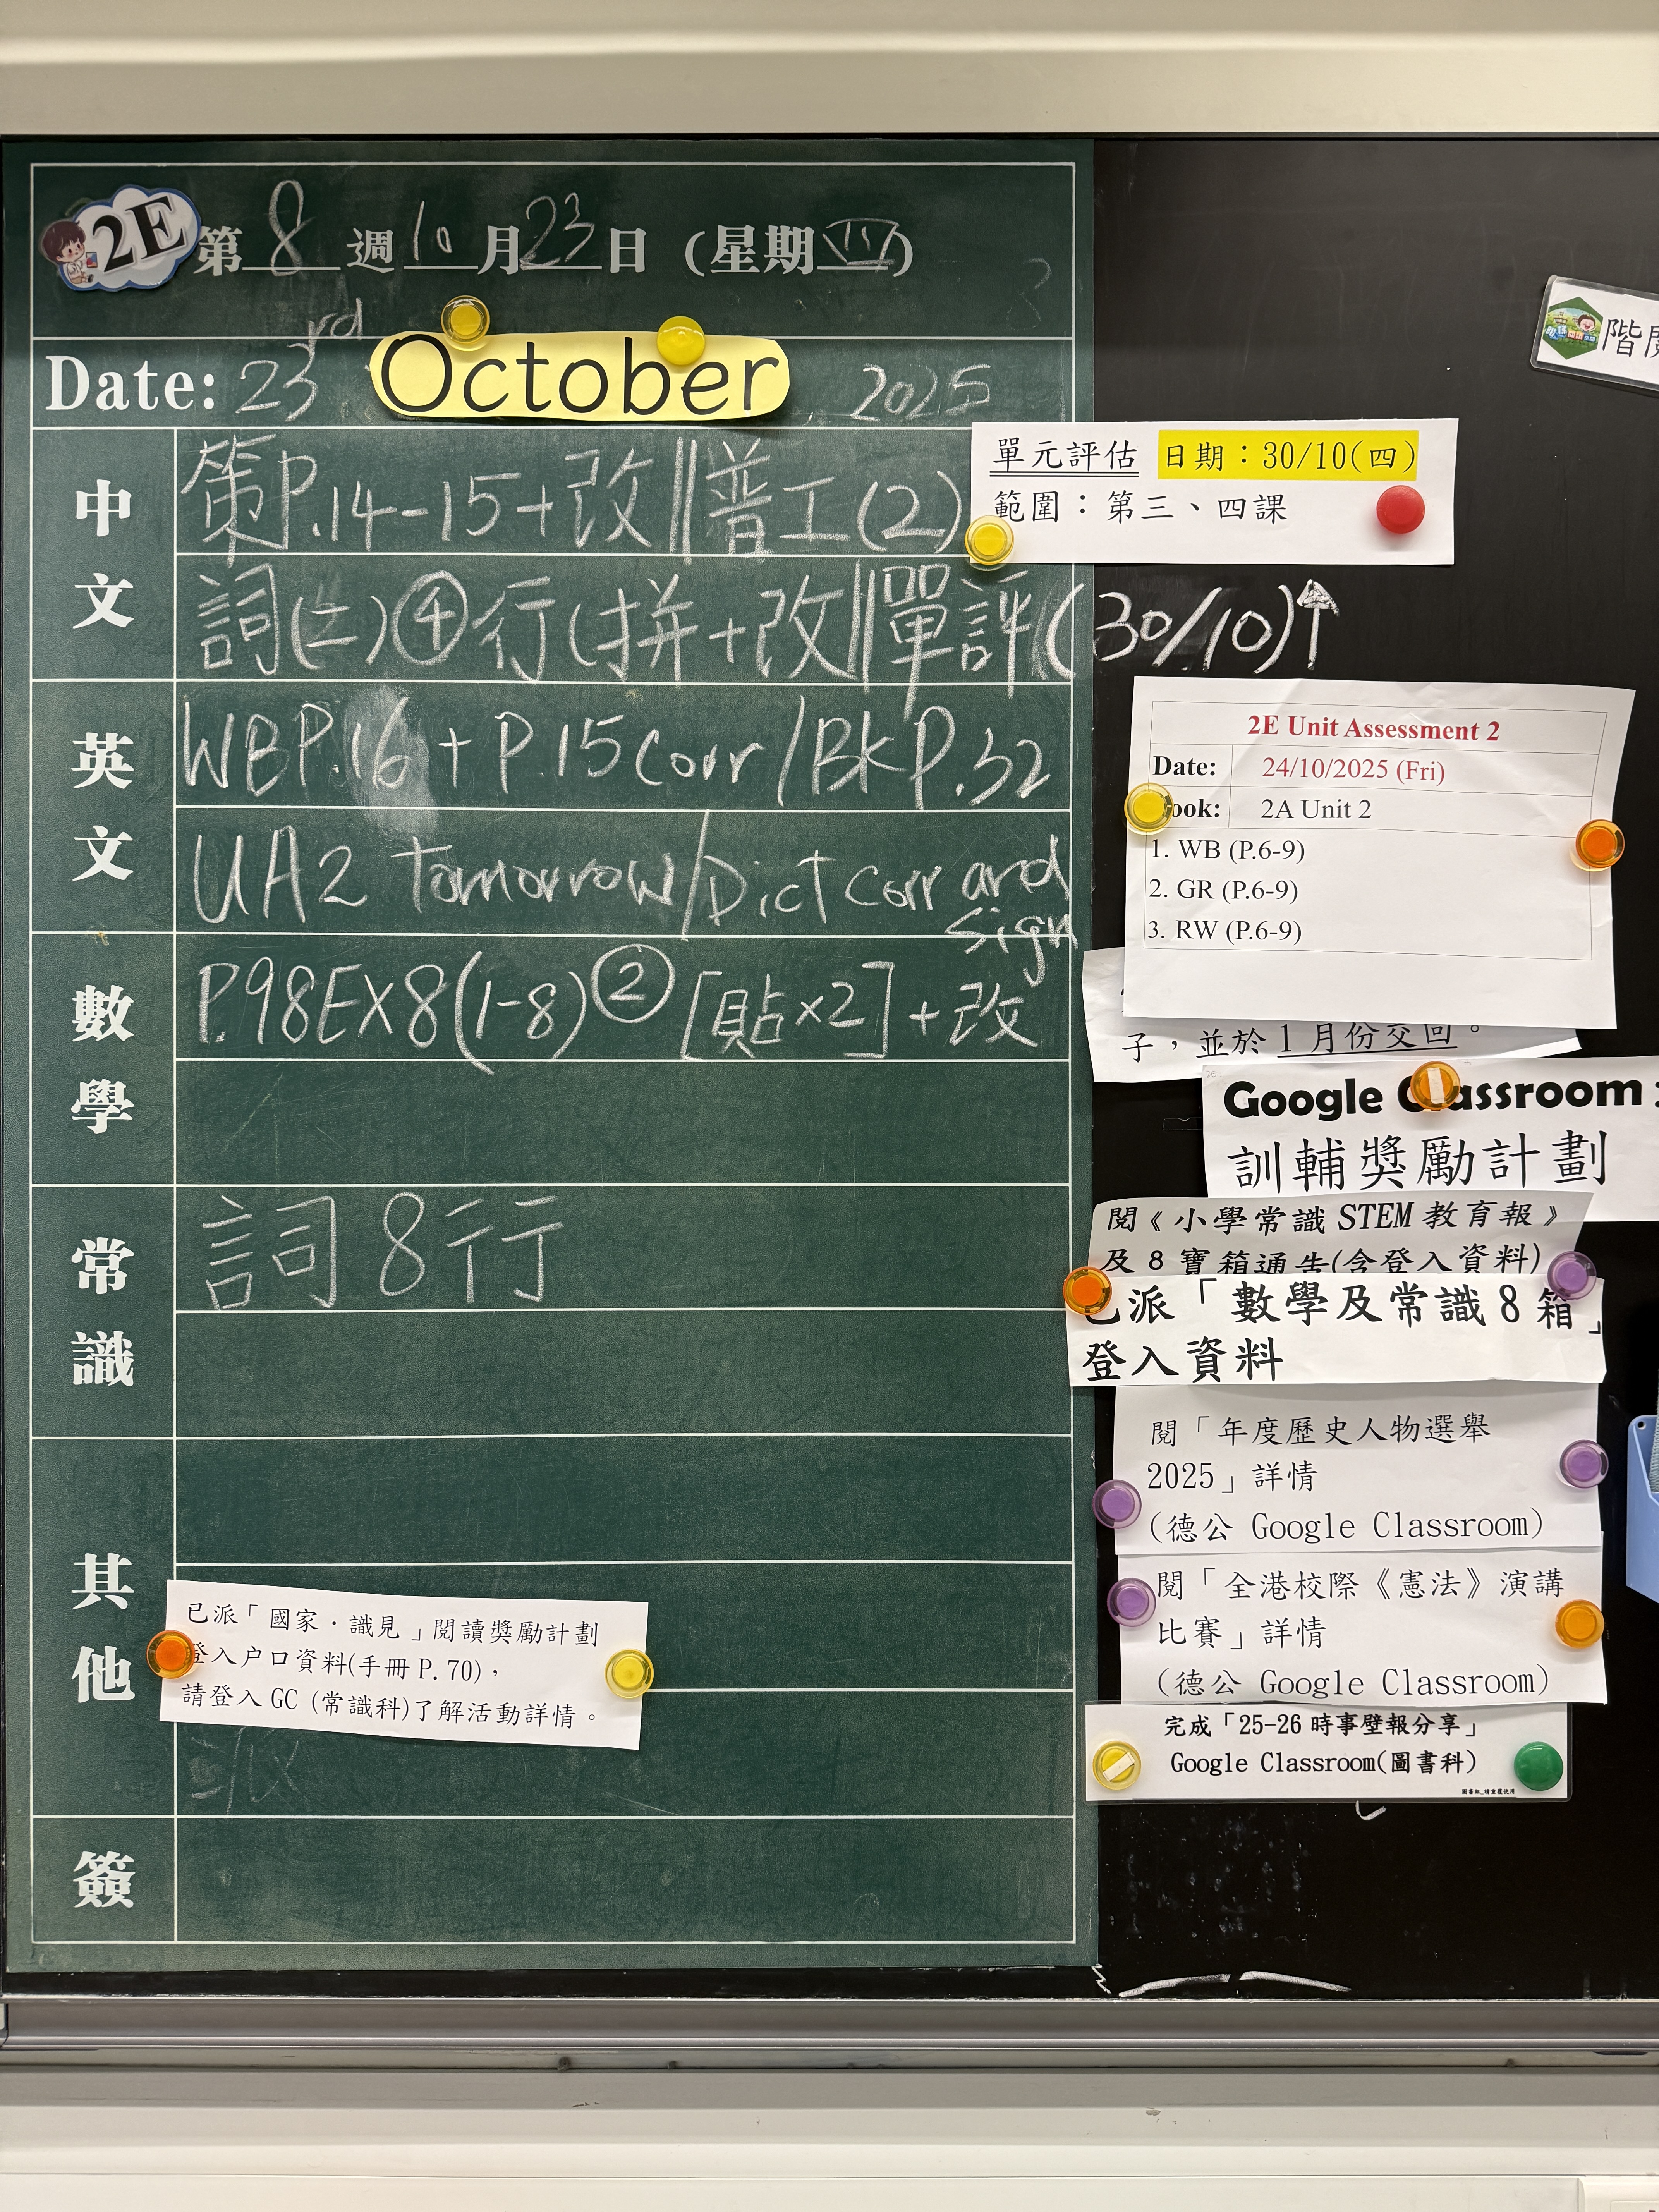 2E 第 8 週 10 月 23 日 (星期 四)
Date: 23rd October 2025
中文
策P.14-15+改||普工(2)
詞(二)④行(拼+改||單評(30/10)↑
英文
WBP.16 + P.15 Corr/BkP.32
UA2 tomorrow/Dict Corr and sign
數學
P.98EX8(1-8)② [貼×2]+改
常識
詞 8 行
其他
已派「國家．識見」閱讀獎勵計劃
登入户口資料(手冊 P.70)，
請登入 GC (常識科)了解活動詳情。
派
簽
單元評估 日期：30/10(四)
範圍：第三、四課
2E Unit Assessment 2
Date: 24/10/2025 (Fri)
ook: 2A Unit 2
1. WB (P.6-9)
2. GR (P.6-9)
3. RW (P.6-9)
子，並於 1 月份交回。
2E
Google C assroom
訓輔獎勵計劃
閱《小學常識 STEM 教育報》
及 8 寶箱通告(含登入資料)
已派「數學及常識 8 箱」
登入資料
閱「年度歷史人物選舉
2025」詳情
(德公 Google Classroom)
閱「全港校際《憲法》演講
比賽」詳情
(德公 Google Classroom)
完成「25-26 時事壁報分享」
Google Classroom(圖書科)
階